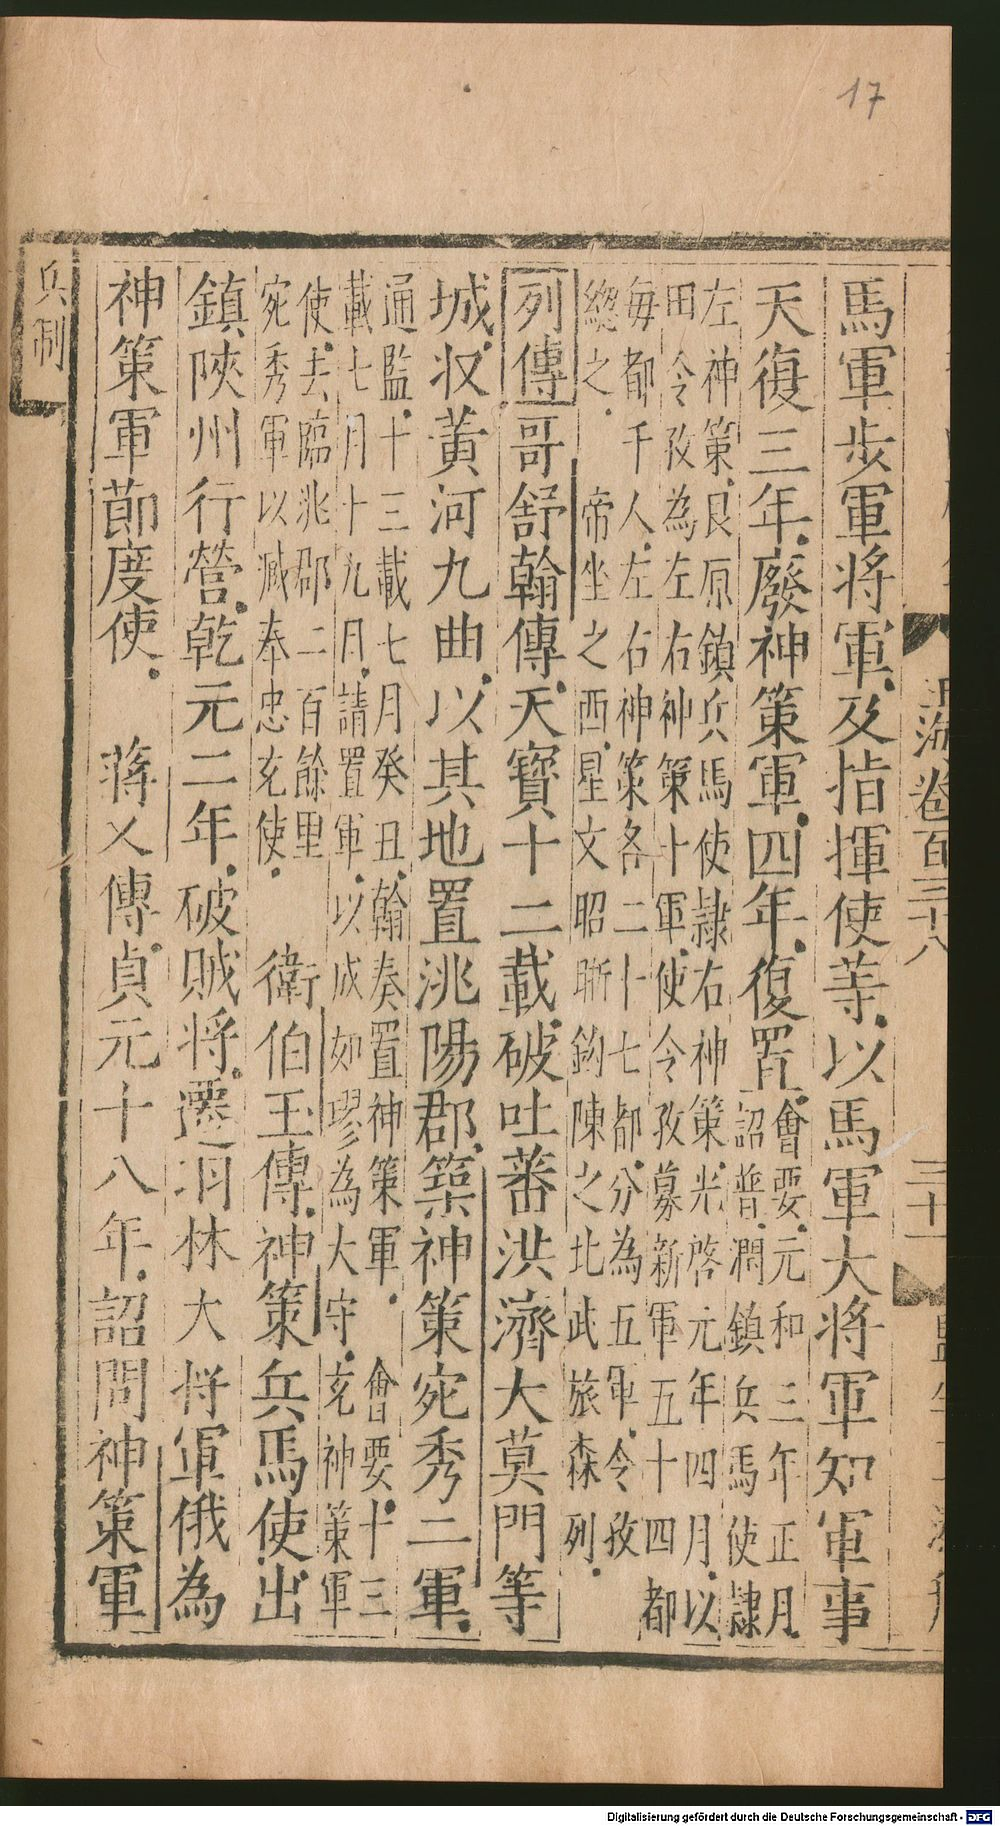 17
玉海卷百三十八
三十一
馬軍步軍將軍及指揮使等以馬軍大將軍知軍事
天復三年廢神策軍四年復置
會要元和三年正月
詔普潤鎮兵馬使隷
左神策良原鎮兵馬使隷右神策光啓元年四月以
田令孜為左右神策十軍使令孜募新軍五十四都
每都千人左右神策各二十七都分為五軍令孜
總之 帝坐之西星文昭晰鈎陳之北武旅森列
列傳哥舒翰傳天寶十二載破吐蕃洪濟大莫門等
城収黃河九曲以其地置洮陽郡築神策宛秀二軍
通監十三載七月癸丑翰奏置神策軍 會要十三
載七月十九日請置軍以成如璆為大守充神策軍
使去臨洮郡二百餘里
宛秀軍以臧奉忠充使
衛伯玉傳神策兵馬使出
鎮陝州行營乾元二年破賊將遷羽林大將軍俄為
神策軍節度使 蔣乂傳貞元十八年詔問神策軍
兵制
Digitalisierung gefördert durch die Deutsche Forschungsgemeinschaft - DFG